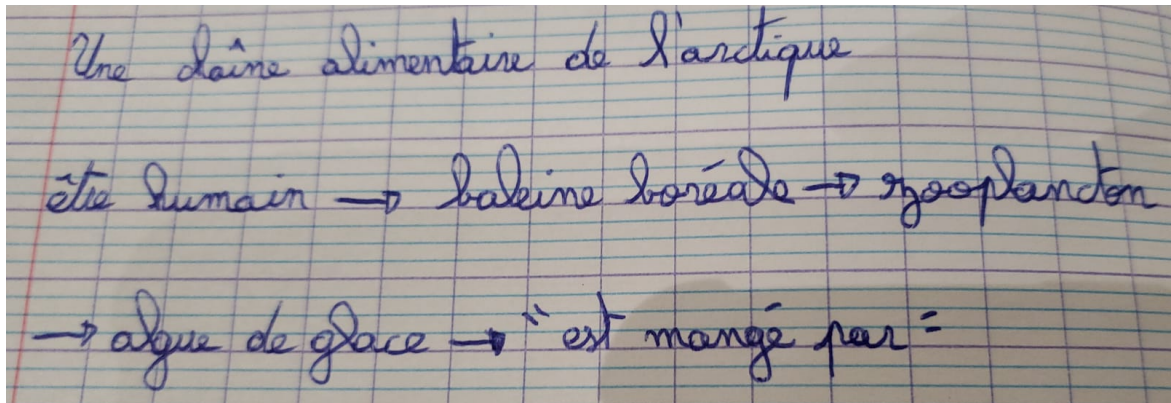 Une chaîne alimentaire de l'arctique
être humain → baleine boréale → zooplancton
→ algue de glace → "est mangé par"